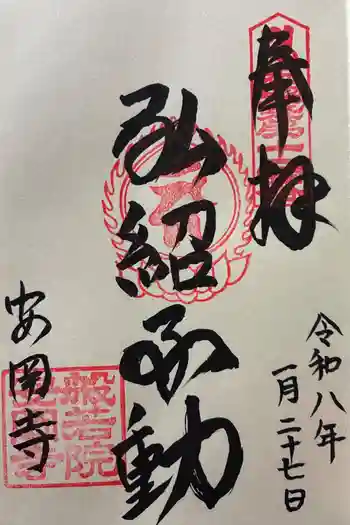 奉拝
令和八年
一月二十七日
弘紹不動
安国寺
般若院